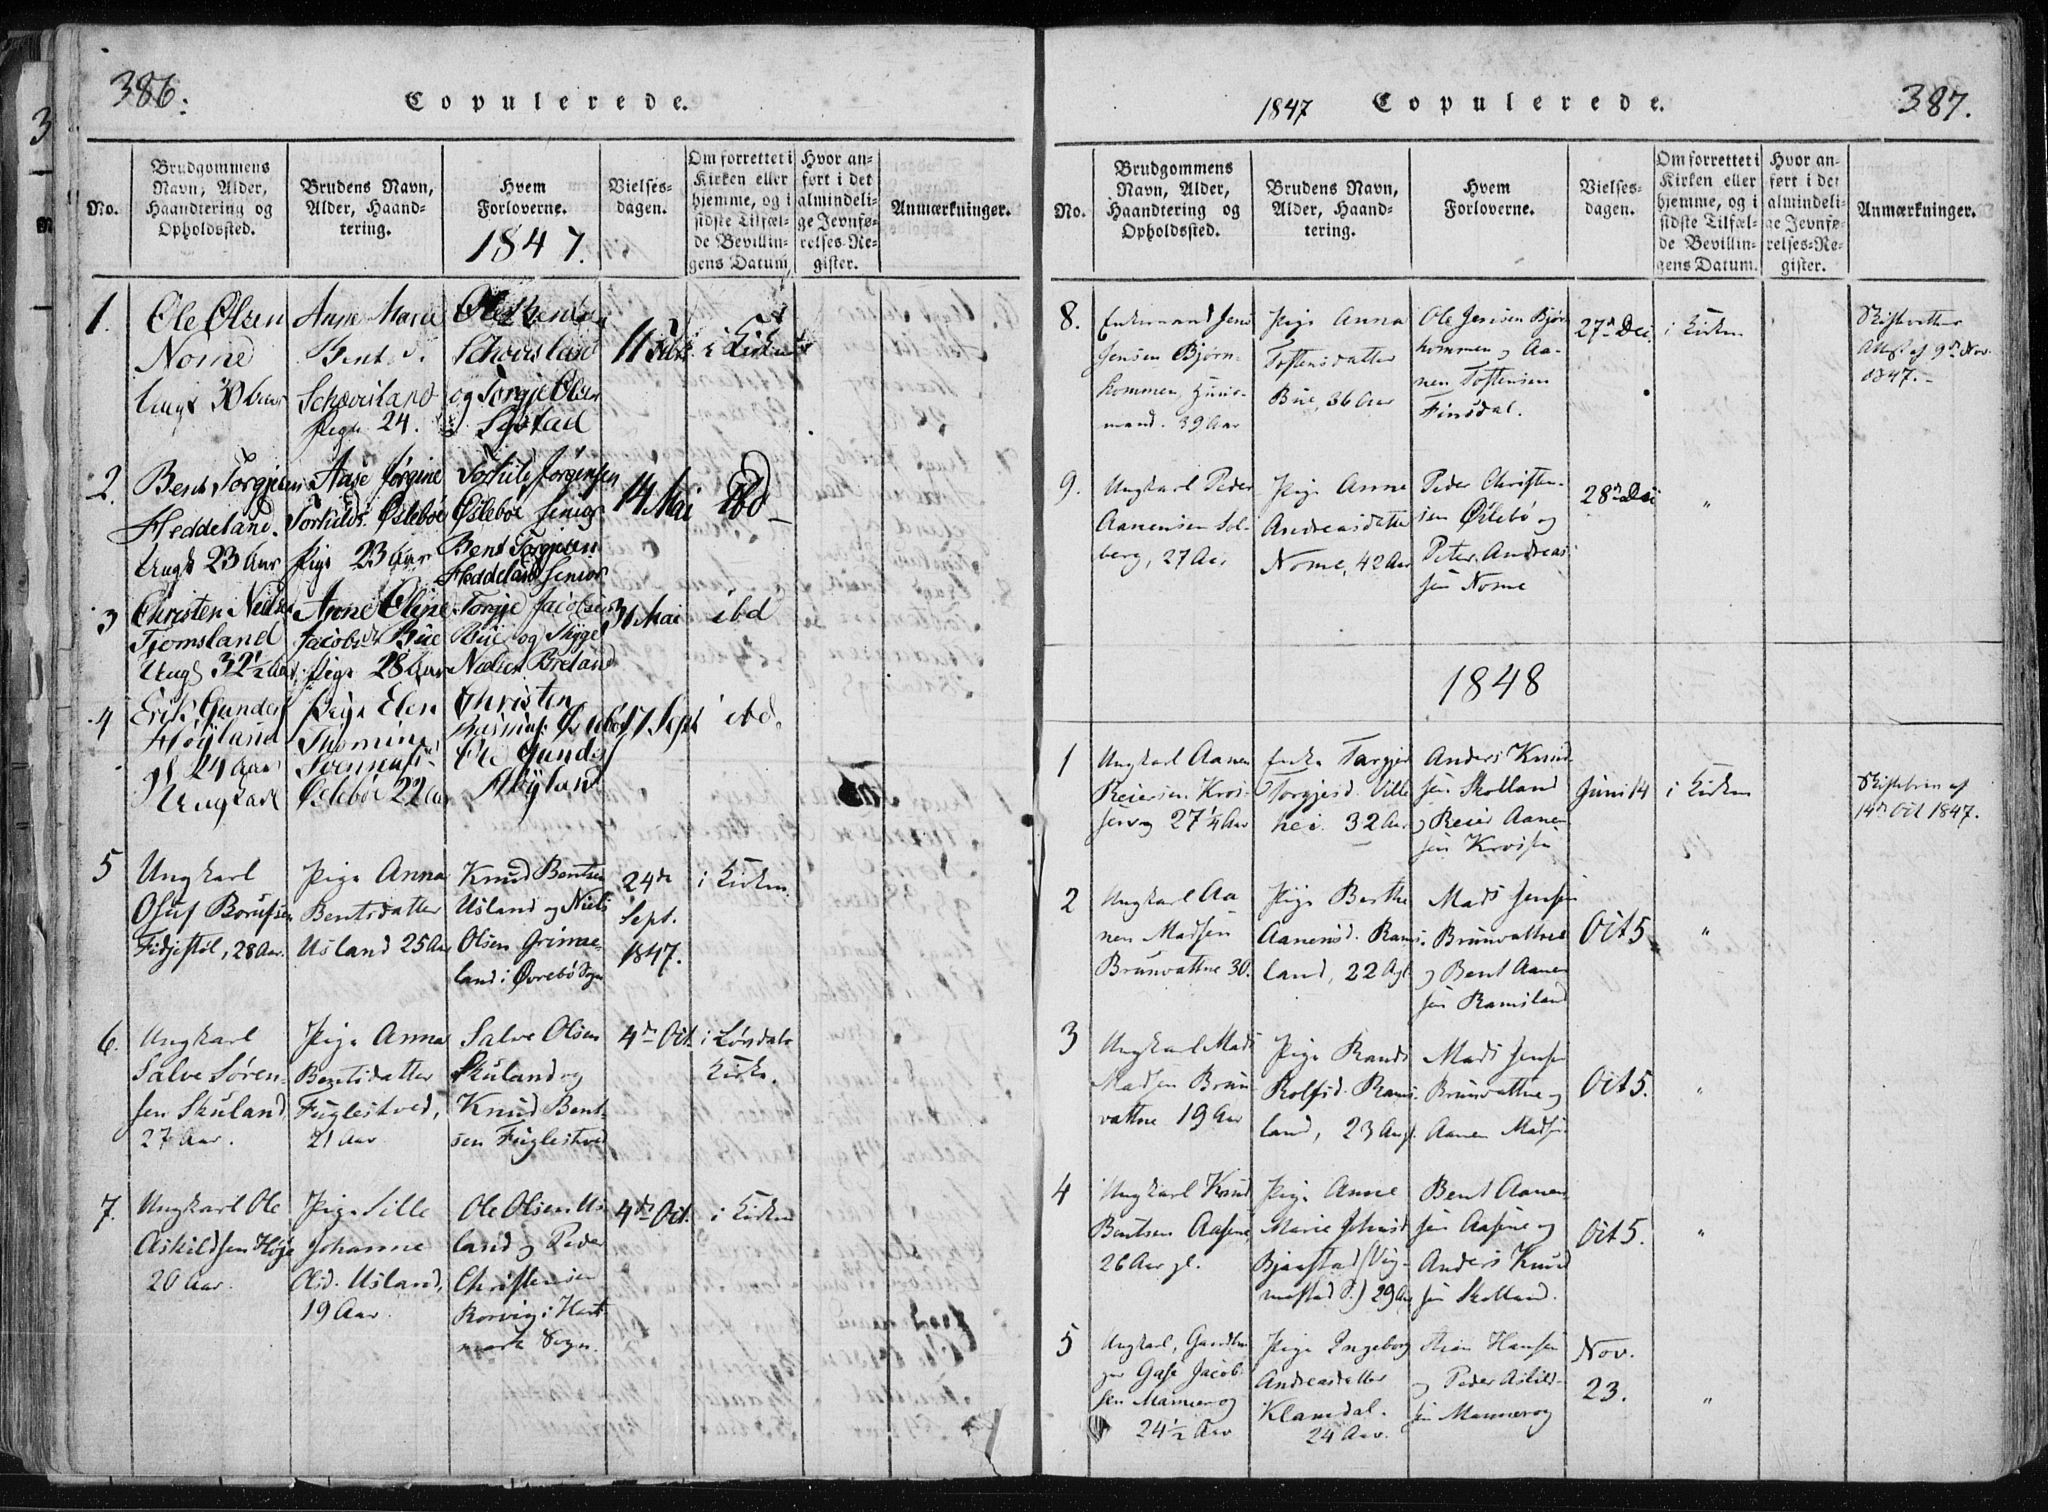 386.
Copulerede.
No.
Brudgommens
Navn, Alder,
Haandtering og
Opholdssted.
Brudens Navn,
Alder, Haand-
tering.
Hvem
Forloverne.
1847.
Vielses-
dagen.
Om forrettet i
Kirken eller
hjemme, og i
sidste Tilfæl-
de Bevillin-
gens Datum.
Hvor an-
ført i det
almindeli-
ge Jevnfø-
relses-Re-
gister.
Anmærkninger.
1.
Ole Olsen
Nome
Ungk 30 Aar
Anne Marie
Bent. d.
Schovsland
pige 24.
Ole
Schovsland
og Torgje Olsen
11 Febr
i Kirken
2.
Bent Torgjesen
Heddeland.
Ungk 23 Aar
Aase Jørgine
Torkilds. Øslebøe
pige 23 Aar
Torkild Jørgensen
Øslebøe senior
Bent Torgjesen
Heddeland senior
14 Mai
Ibd
3
Christen Nielsen
Tjomsland
Ungk 32½ Aar
Anne Oline
Jacobsdr Büe
pige 28 Aar
Torgje Jacobsen
Büe og Thyge
Nielsen Breland
31 Mai
ibd
4
Erik Gunders
Høyland
24 Aar
Ungkarl
Pige Elen
Thomine
Øslebøe 22 Aar
Christen
Rasmus. Øslebøe
Ole Gunders
Høyland
17 Sept
ibd.
5
Ungkarl
Oluf Borufsen
Fidjestøl, 28 Aar.
Pige Anna
Bentsdatter
Usland 25 Aar
Knud Bentsen
Usland og Niels
Olsen Grimme-
land i Øvrebø Sogn
24de
Sept.
1847.
i Kirken
6.
Ungkarl
Salve Søren-
sen Skuland,
27 Aar.
Pige Anna
Bentsdatter
Fuglestved,
21 Aar
Salve Olsen
Skuland og
Knud Bent-
sen Fuglestved
4de Oct.
i Løvdals
Kirke.
7.
Ungkarl Ole
Askildsen Høye
20 Aar.
Pige Sille
Johanne
Olsd. Usland,
19 Aar.
Ole Olsen Us-
land og Peder
Christensen
Rosvig i Hart-
mark Sogn.
4de Oct.
i Kirken
1847
Copulerede.
387.
No.
Brudgommens
Navn, Alder,
Haandtering og
Opholdssted.
Brudens Navn,
Alder, Haand-
tering.
Hvem
Forloverne.
Vielses-
dagen.
Om forrettet i
Kirken eller
hjemme, og i
sidste Tilfæl-
de Bevillin-
gens Datum.
Hvor an-
ført i det
almindeli-
ge Jevnfø-
relses-Re-
gister.
Anmærkninger.
8.
Enkemand Jens
Jensen Bjørn-
kommen, Huus-
mand. 39 Aar
Pige Anna
Tostensdatter
Büe, 36 Aar
Ole Jensen Bjørn
kommen og Aa-
nen Tostensen
Finsdal.
27de Dec.
i Kirken
Skifteretten
Attest af 9de Nov.
1847.
9.
Ungkarl Peder
Aanensen Sol-
berg, 27 Aar
Pige Anne
Andreasdatter
Nome, 42 Aar
Peder Christen-
sen Øslebø og
Peter Andreas-
sen Nome
28de Dec
"
1848
1
Ungkarl Aanen
Reiersen Kros-
sen 27¼ Aar
Enke Targjerd
Torgjesd. Ville
hei. 32 Aar
Anders Knud
sen Skolland
og Reier Aanen
sen Krossen
Juni 14
i Kirken
Skiftebrev af
14de Oct 1847.
2
Ungkarl Aa
nen Madsen
Brunvattne 30.
Pige Berthe
Aanensd. Rams-
land, 22 Agl.
Mads Jensen
Brunvattne
og Bent Aanen
sen Ramsland
Oct 5
"
3
Ungkarl Mads
Madsen Brun-
vattne 19 Aar
Pige Randi
Rolfsd. Rams-
land, 23 Aagl.
Mads Jensen
Brunvattne og
Aanen Madsen
Oct 5.
"
4
Ungkarl Knud
Bentsen Aasene
26 Aar gl.
Pige Anne
Marie Johnsd
Bjaastad (Vig-
mostad P.) 29 Aar
Bent Aanen
sen Aasene og
Anders Knud
sen Skolland.
Oct 5.
"
5
Ungkarl,
Jacob-
sen
24½ Aar
Pige Ingeborg
Andreasdatter
Klamdal.
24 Aar.
Hansen
og Peder Askild-
sen
Nov.
23.
"